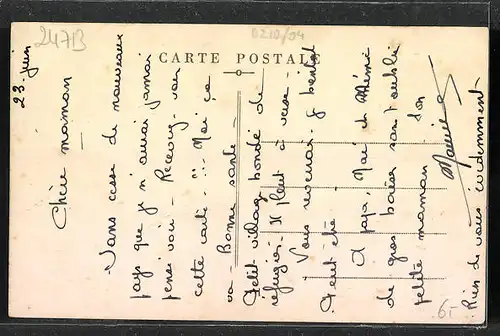 24713
0210/04
CARTE POSTALE
23 juin
Chère maman
Sans cesse de nouveaux
pays que je n'aurai jamai
pensé voir - Recevez - vous
cette carte - ... Moi ça
va - Bonne santé -
Petit village bondé de
réfugiés - Il pleut à verse -
Vous reverrai - je bientot
Peut etre
A papa, Moi et Mémé
de gros baiser sans t'oublié
petite maman
Ton
Maurice
Rien de vous évidemment
6,-